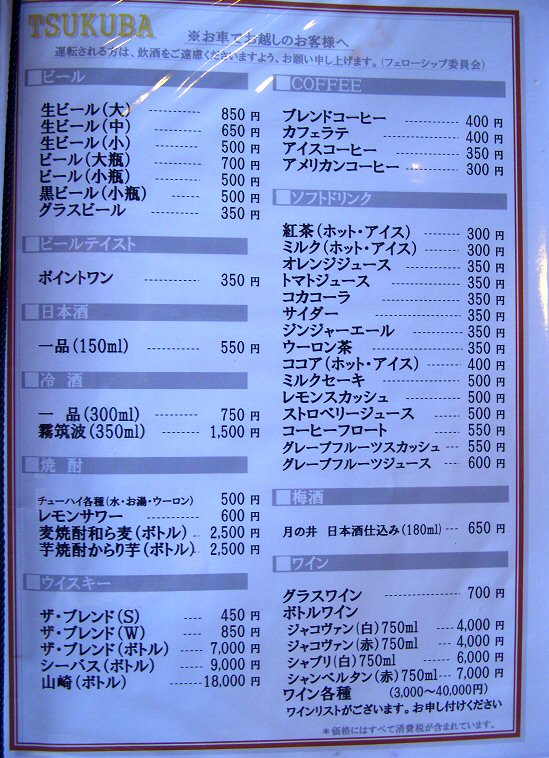 TSUKUBA
※お車でお越しのお客様へ
運転される方は、飲酒をご遠慮くださいますよう、お願い申し上げます。(フェローシップ委員会)
ビール
生ビール(大) ---------- 850 円
生ビール(中) ---------- 650 円
生ビール(小) ---------- 500 円
ビール(大瓶) ---------- 700 円
ビール(小瓶) ---------- 500 円
黒ビール(小瓶) ------- 500 円
グラスビール ---------- 350 円
ビールテイスト
ポイントワン ---------- 350 円
日本酒
一品(150ml) --------- 550 円
冷 酒
一 品(300ml) -------- 750 円
霧筑波(350ml) ------- 1,500 円
焼 酎
チューハイ各種(水・お湯・ウーロン) 500 円
レモンサワー --------- 600 円
麦焼酎和ら麦(ボトル) -- 2,500 円
芋焼酎からり芋(ボトル) -- 2,500 円
ウイスキー
ザ・ブレンド(S) ---- 450 円
ザ・ブレンド(W) ---- 850 円
ザ・ブレンド(ボトル) ---- 7,000 円
シーバス(ボトル) ----- 9,000 円
山崎(ボトル) --------- 18,000 円
COFFEE
ブレンドコーヒー ---------- 400 円
カフェラテ ------------- 400 円
アイスコーヒー ---------- 350 円
アメリカンコーヒー ------- 300 円
ソフトドリンク
紅茶(ホット・アイス) ------ 300 円
ミルク(ホット・アイス) ----- 300 円
オレンジジュース -------- 350 円
トマトジュース ---------- 350 円
コカコーラ ------------ 350 円
サイダー -------------- 350 円
ジンジャーエール -------- 350 円
ウーロン茶 ------------ 350 円
ココア(ホット・アイス) ----- 400 円
ミルクセーキ ----------- 500 円
レモンスカッシュ -------- 500 円
ストロベリージュース ------ 500 円
コーヒーフロート -------- 550 円
グレープフルーツスカッシュ --- 550 円
グレープフルーツジュース ---- 600 円
梅酒
月の井 日本酒仕込み(180ml) --- 650 円
ワイン
グラスワイン ----------- 700 円
ボトルワイン
ジャコヴァン(白)750ml ---- 4,000 円
ジャコヴァン(赤)750ml ---- 4,000 円
シャブリ(白)750ml ------ 6,000 円
シャンベルタン(赤)750ml--- 7,000 円
ワイン各種 (3,000～40,000円)
ワインリストがございます。お申し付けください
＊価格にはすべて消費税が含まれています。